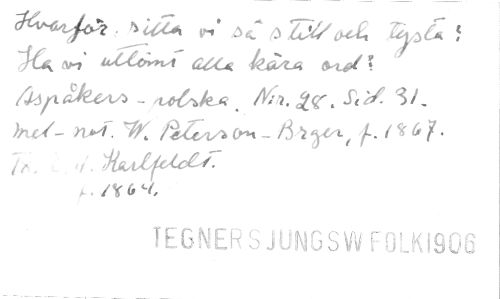 Hvarför sitta vi så still och tysta?
Ha vi uttömt alla kära ord?
Aspåkers-polska. Nr. 28. Sid. 31.
mel-not. W. Peterson-Brger, f. 1867.
Karlfeldt.
f. 1864.
TEGNERSJUNGSWFOLK1906